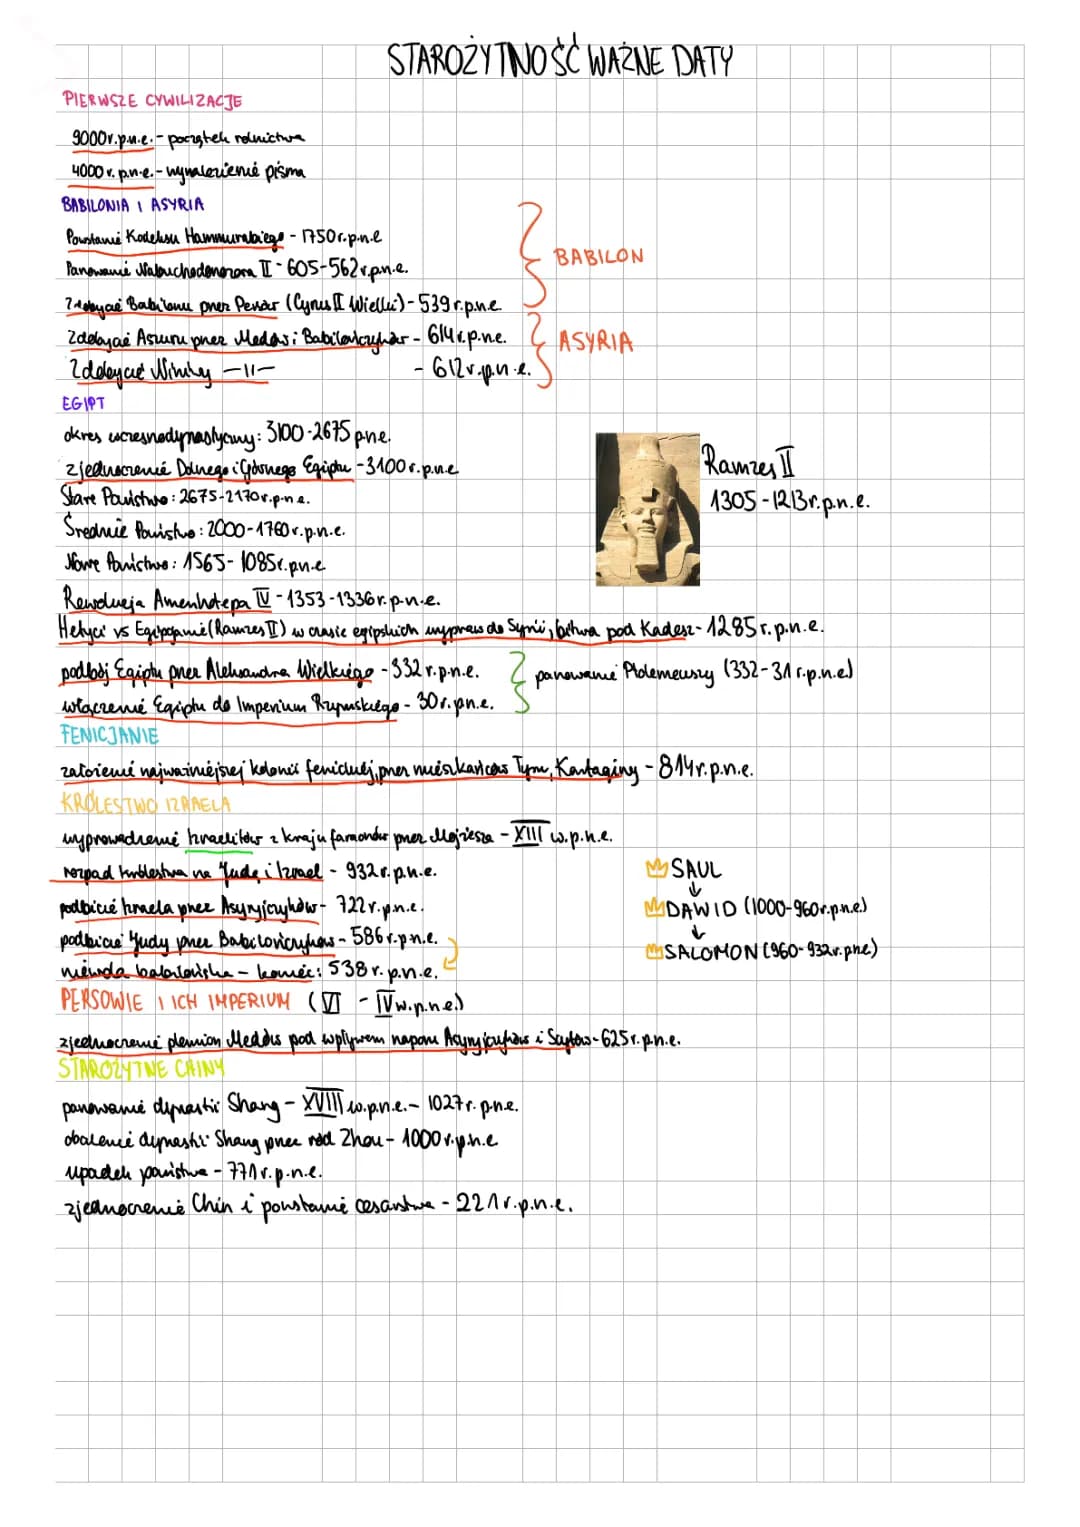 STAROŻYTNOŚĆ WAŻNE DATY
PIERWSZE CYWILIZACJE
9000r.p.n.e. - początek rolnictwa
4000 r. p.n.e. - wynalezienie pisma
BABILONIA I ASYRIA
Powstanie Kodeksu Hammurabiego - 1750r.p.n.e
Panowanie Nabuchodonozora II - 605-562r.p.n.e.
Zdobycie Babilonu przez Persów (Cyrus II Wielki) - 539r.p.n.e.
BABILON
Zdobycie Assuru przez Medów i Babilończyków - 614r.p.n.e.
Zdobycie Niniwy -11- - 612r.p.n.e.
ASYRIA
EGIPT
okres wczesnodynastyczny: 3100-2675 p.n.e.
zjednoczenie Dolnego i Górnego Egiptu - 3100r.p.n.e
Stare Państwo: 2675-2170r.p.n.e.
Średnie Państwo: 2000-1760r.p.n.e.
Nowe Państwo: 1565-1085r.p.n.e
Ramzes II
1305-1213r.p.n.e.
Rewolucja Amenhotepa IV - 1353-1336r.p.n.e.
Hetyci vs Egipcjanie (Ramzes II) w czasie egipskich wypraw do Syrii, bitwa pod Kadesz - 1285r.p.n.e.
podbój Egiptu przez Aleksandra Wielkiego - 332r.p.n.e.
włączenie Egiptu do Imperium Rzymskiego - 30r.p.n.e.
panowanie Ptolemeuszy (332-31r.p.n.e)
FENICJANIE
założenie najważniejszej kolonii fenickiej, przez mieszkańców Tyru, Kartaginy - 814r.p.n.e.
KRÓLESTWO IZRAELA
wyprowadzenie Izraelitów z kraju faraonów przez Mojżesza - XIII w.p.n.e.
rozpad królestwa na Judę i Izrael - 932r.p.n.e.
podbicie Izraela przez Asyryjczyków - 722r.p.n.e.
podbicie Judy przez Babilończyków - 586r.p.n.e.
niewola babilońska - koniec: 538r.p.n.e.
SAUL
↓
DAWID (1000-960r.p.n.e.)
↓
SALOMON (960-932r.p.n.e)
PERSOWIE I ICH IMPERIUM (VI - IV w.p.n.e.)
zjednoczenie plemion Medów pod wpływem naporu Asyryjczyków i Scytów - 625r.p.n.e.
STAROŻYTNE CHINY
panowanie dynastii Shang - XVIII w.p.n.e. - 1027r.p.n.e.
obalenie dynastii Shang przez ród Zhou - 1000r.p.n.e
upadek państwa - 771r.p.n.e.
zjednoczenie Chin i powstanie cesarstwa - 221r.p.n.e.